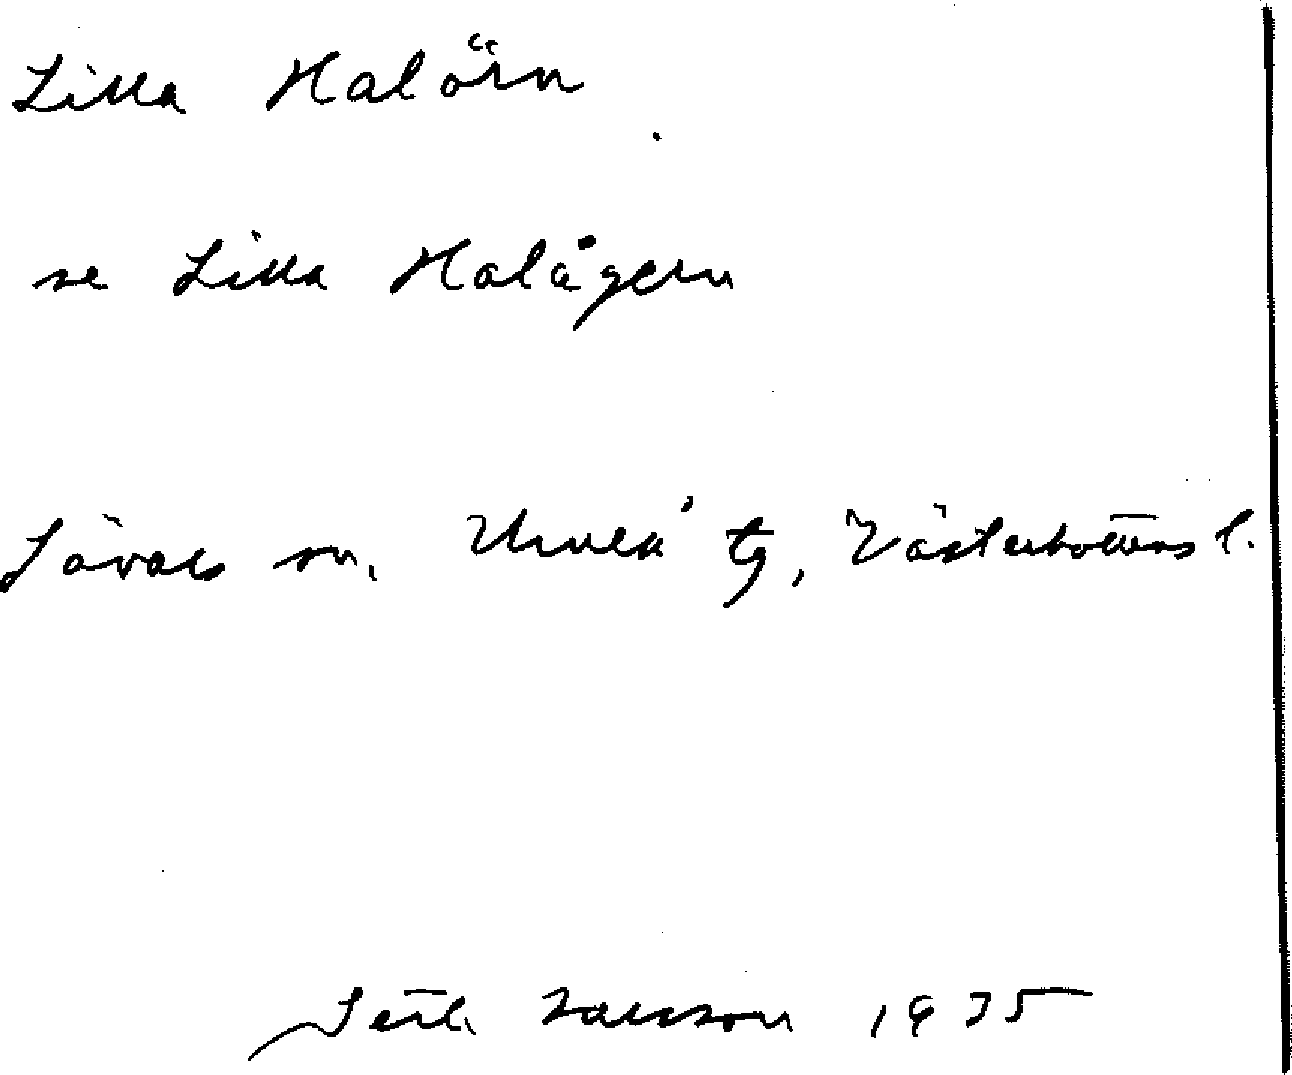 Lilla Halörn
se Lilla Halågern
Sävars sn, Umeå tg, Västerbottens l.
Seth Jansson 1935